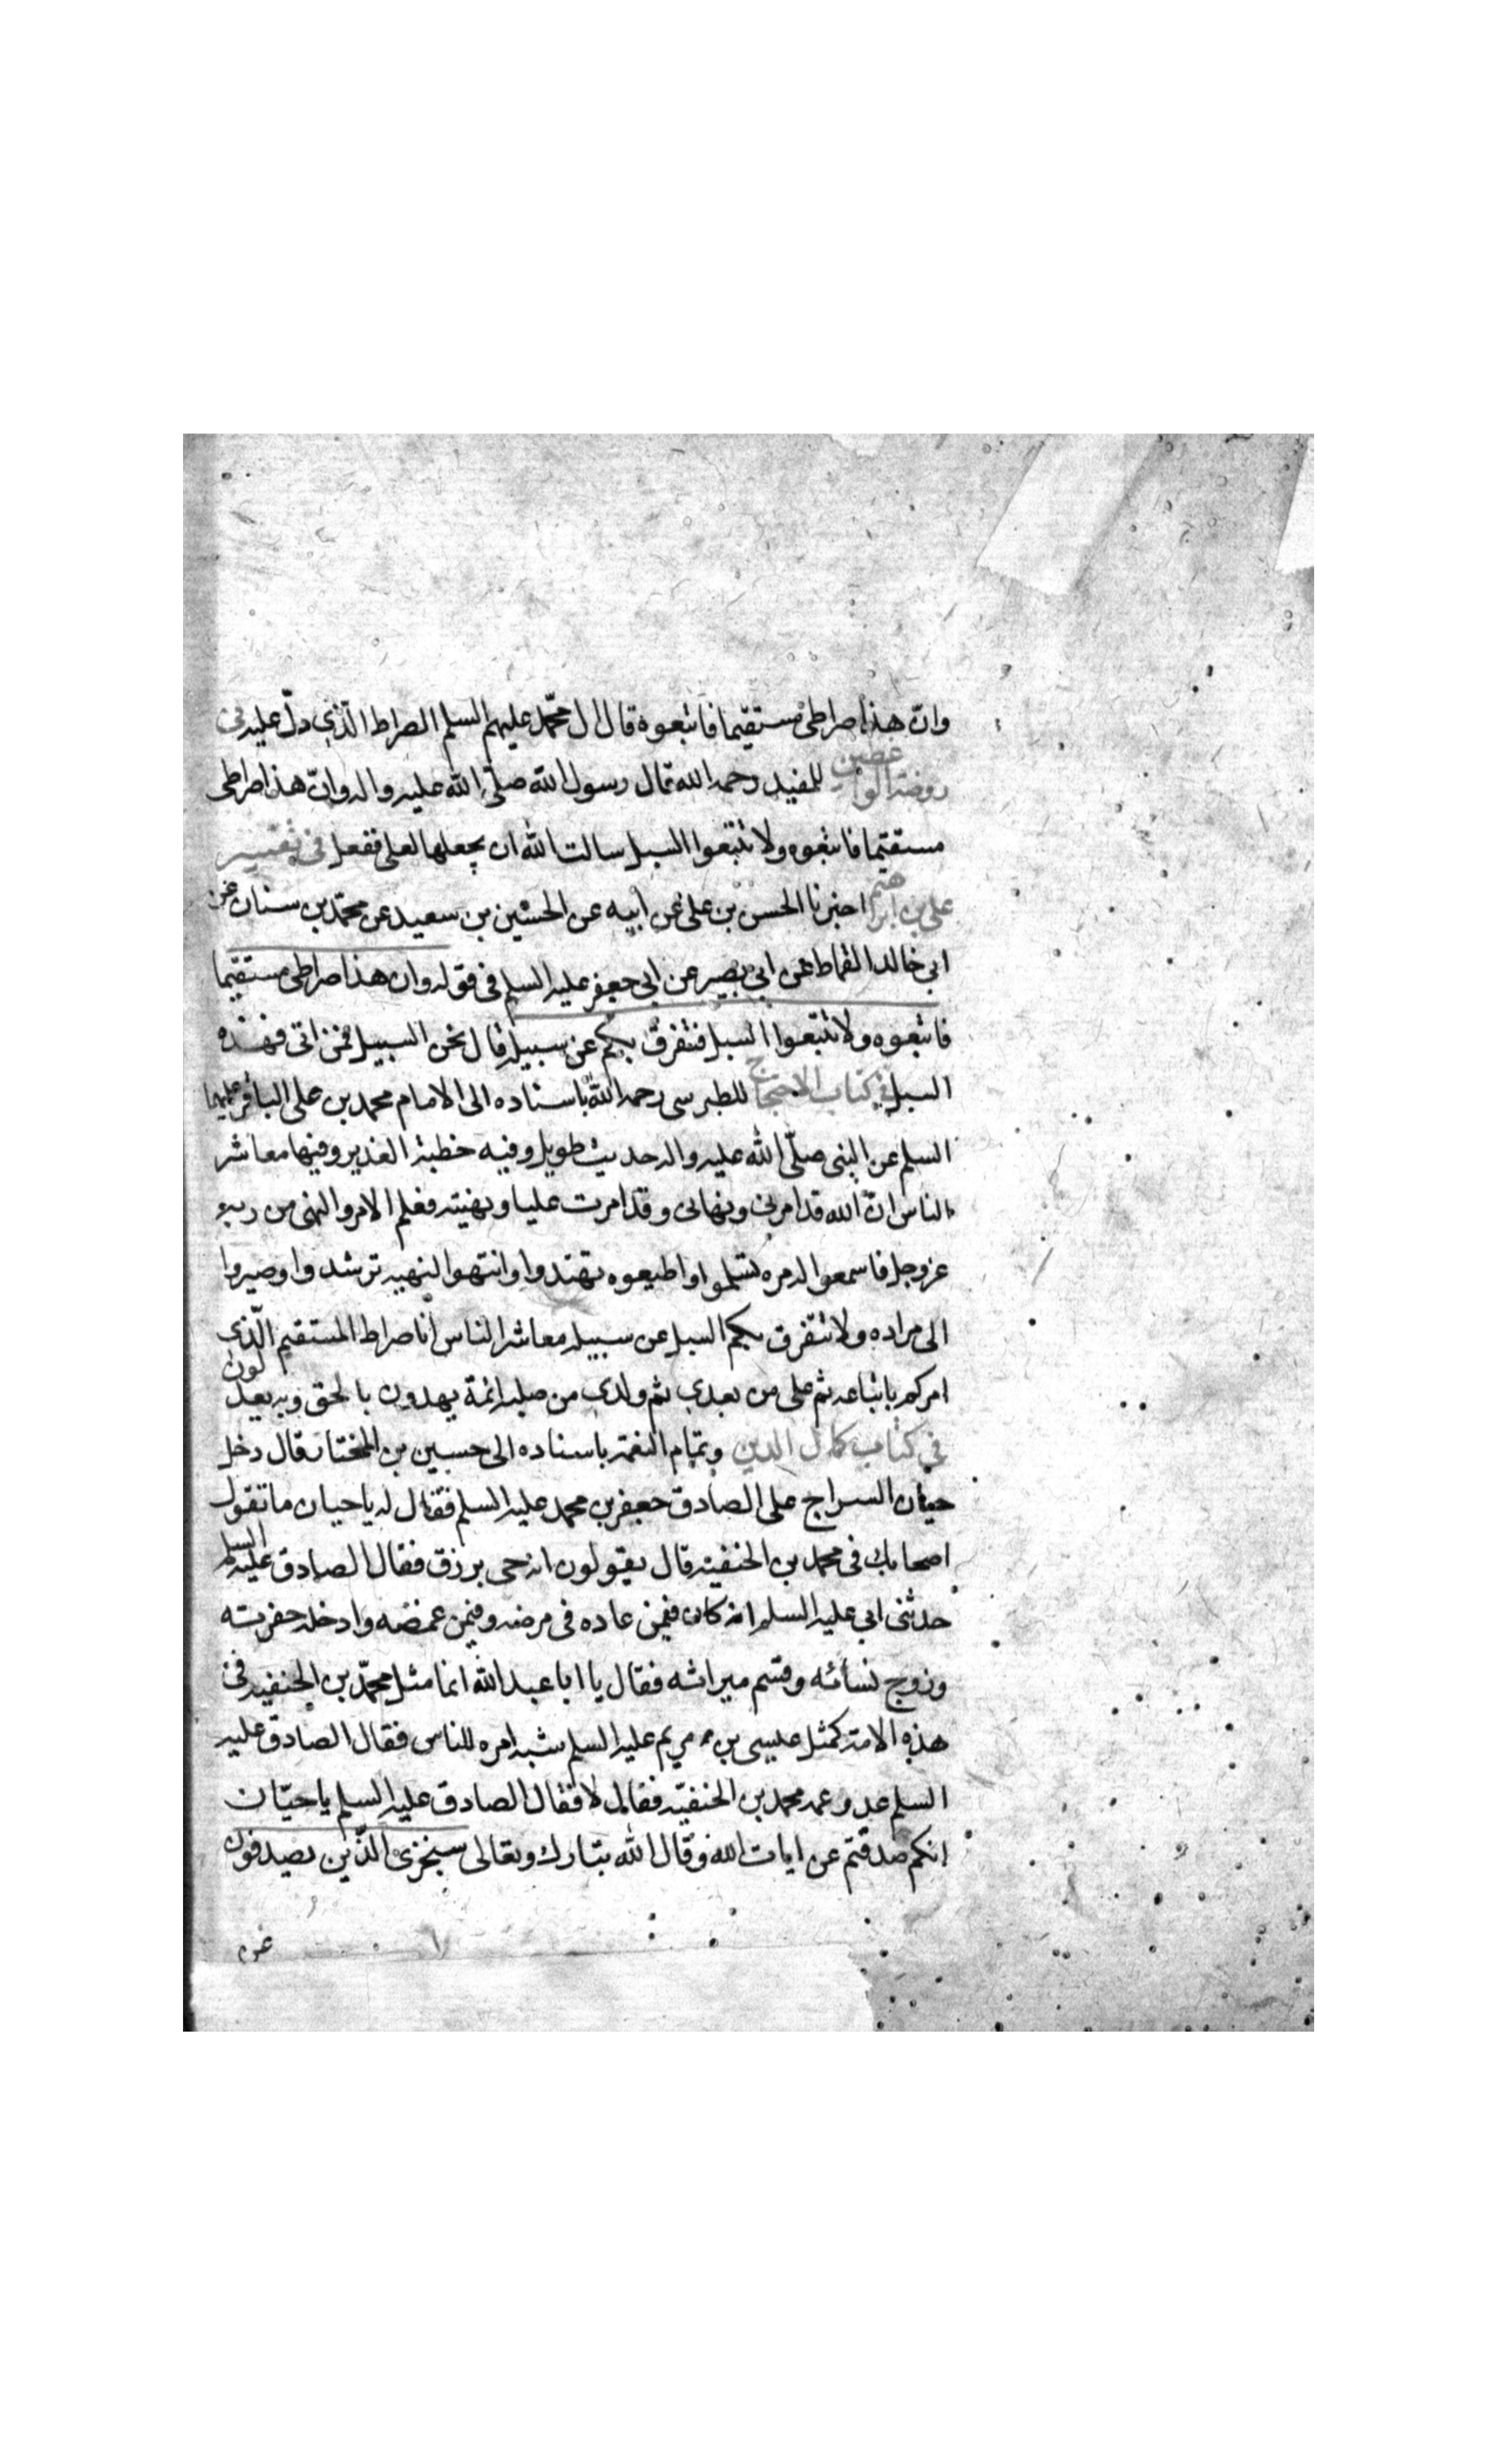 وانّ هذا صراطى مستقيما فاتبعوه قال ال محمّد عليهم السلم الصراط الّذى دلّ عليه فى
روضة الواعظين للمفيد رحمه الله قال رسول الله صلّى الله عليه واله وانّ هذا صراطى
مستقيما فاتبعوه ولا تتبعوا السبل سالت الله ان يجعلها لعلى ففعل فى تفسير
على بن ابرهيم اخبرنا الحسن بن على عن ابيه عن الحسين بن سعيد عن محمّد بن سنان عن
ابى خالد القماط عن ابى بصير عن ابى جعفر عليه السلم فى قوله وان هذا صراطى مستقيما
فاتبعوه ولا تتبعوا السبل فتفرق بكم عن سبيله قال نحن السبيل فمن ابى فهذه
السبل فى كتاب الاحتجاج للطبرسى رحمه الله باسناده الى الامام محمد بن على الباقر عليهما
السلم عن النبى صلّى الله عليه واله حديث طويل وفيه خطبة الغدير وفيها معاشر
الناس انّ الله قد امرنى ونهانى وقد امرت عليا ونهيته فعلم الامر والنهى من ربه
عزوجل فاسمعوا لامره تسلموا واطيعوه تهتدوا وانتهوا لنهيه ترشدوا وصيروا
الى مراده ولا تتفرق بكم السبل عن سبيله معاشر الناس انا صراط المستقيم الّذى
امركم باتباعه ثم على من بعدى ثم ولدى من صلبه ائمة يهدون بالحق وبه يعدلون
فى كتاب كمال الدين وتمام النعمة باسناده الى حسين بن المختار قال دخل
حيان السراج على الصادق جعفر بن محمد عليه السلم فقال له يا حيان ما تقول
اصحابك فى محمد بن الحنفية قال يقولون انه حى يرزق فقال الصادق عليه السلم
حدثنى ابى عليه السلم انه كان فيمن عاده فى مرضه وفيمن غمضه وادخله حفرته
وزوج نسائه وقسم ميراثه فقال يا ابا عبد الله انما مثل محمّد بن الحنفيه فى
هذه الامة كمثل عيسى بن مريم عليه السلم شبه امره للناس فقال الصادق عليه
السلم عدو عمه محمد بن الحنفيّه فقال لا فقال الصادق عليه السلم يا حيّان
انكم صدفتم عن ايات الله وقال الله تبارك وتعالى سنجزى الّذين يصدفون
عن